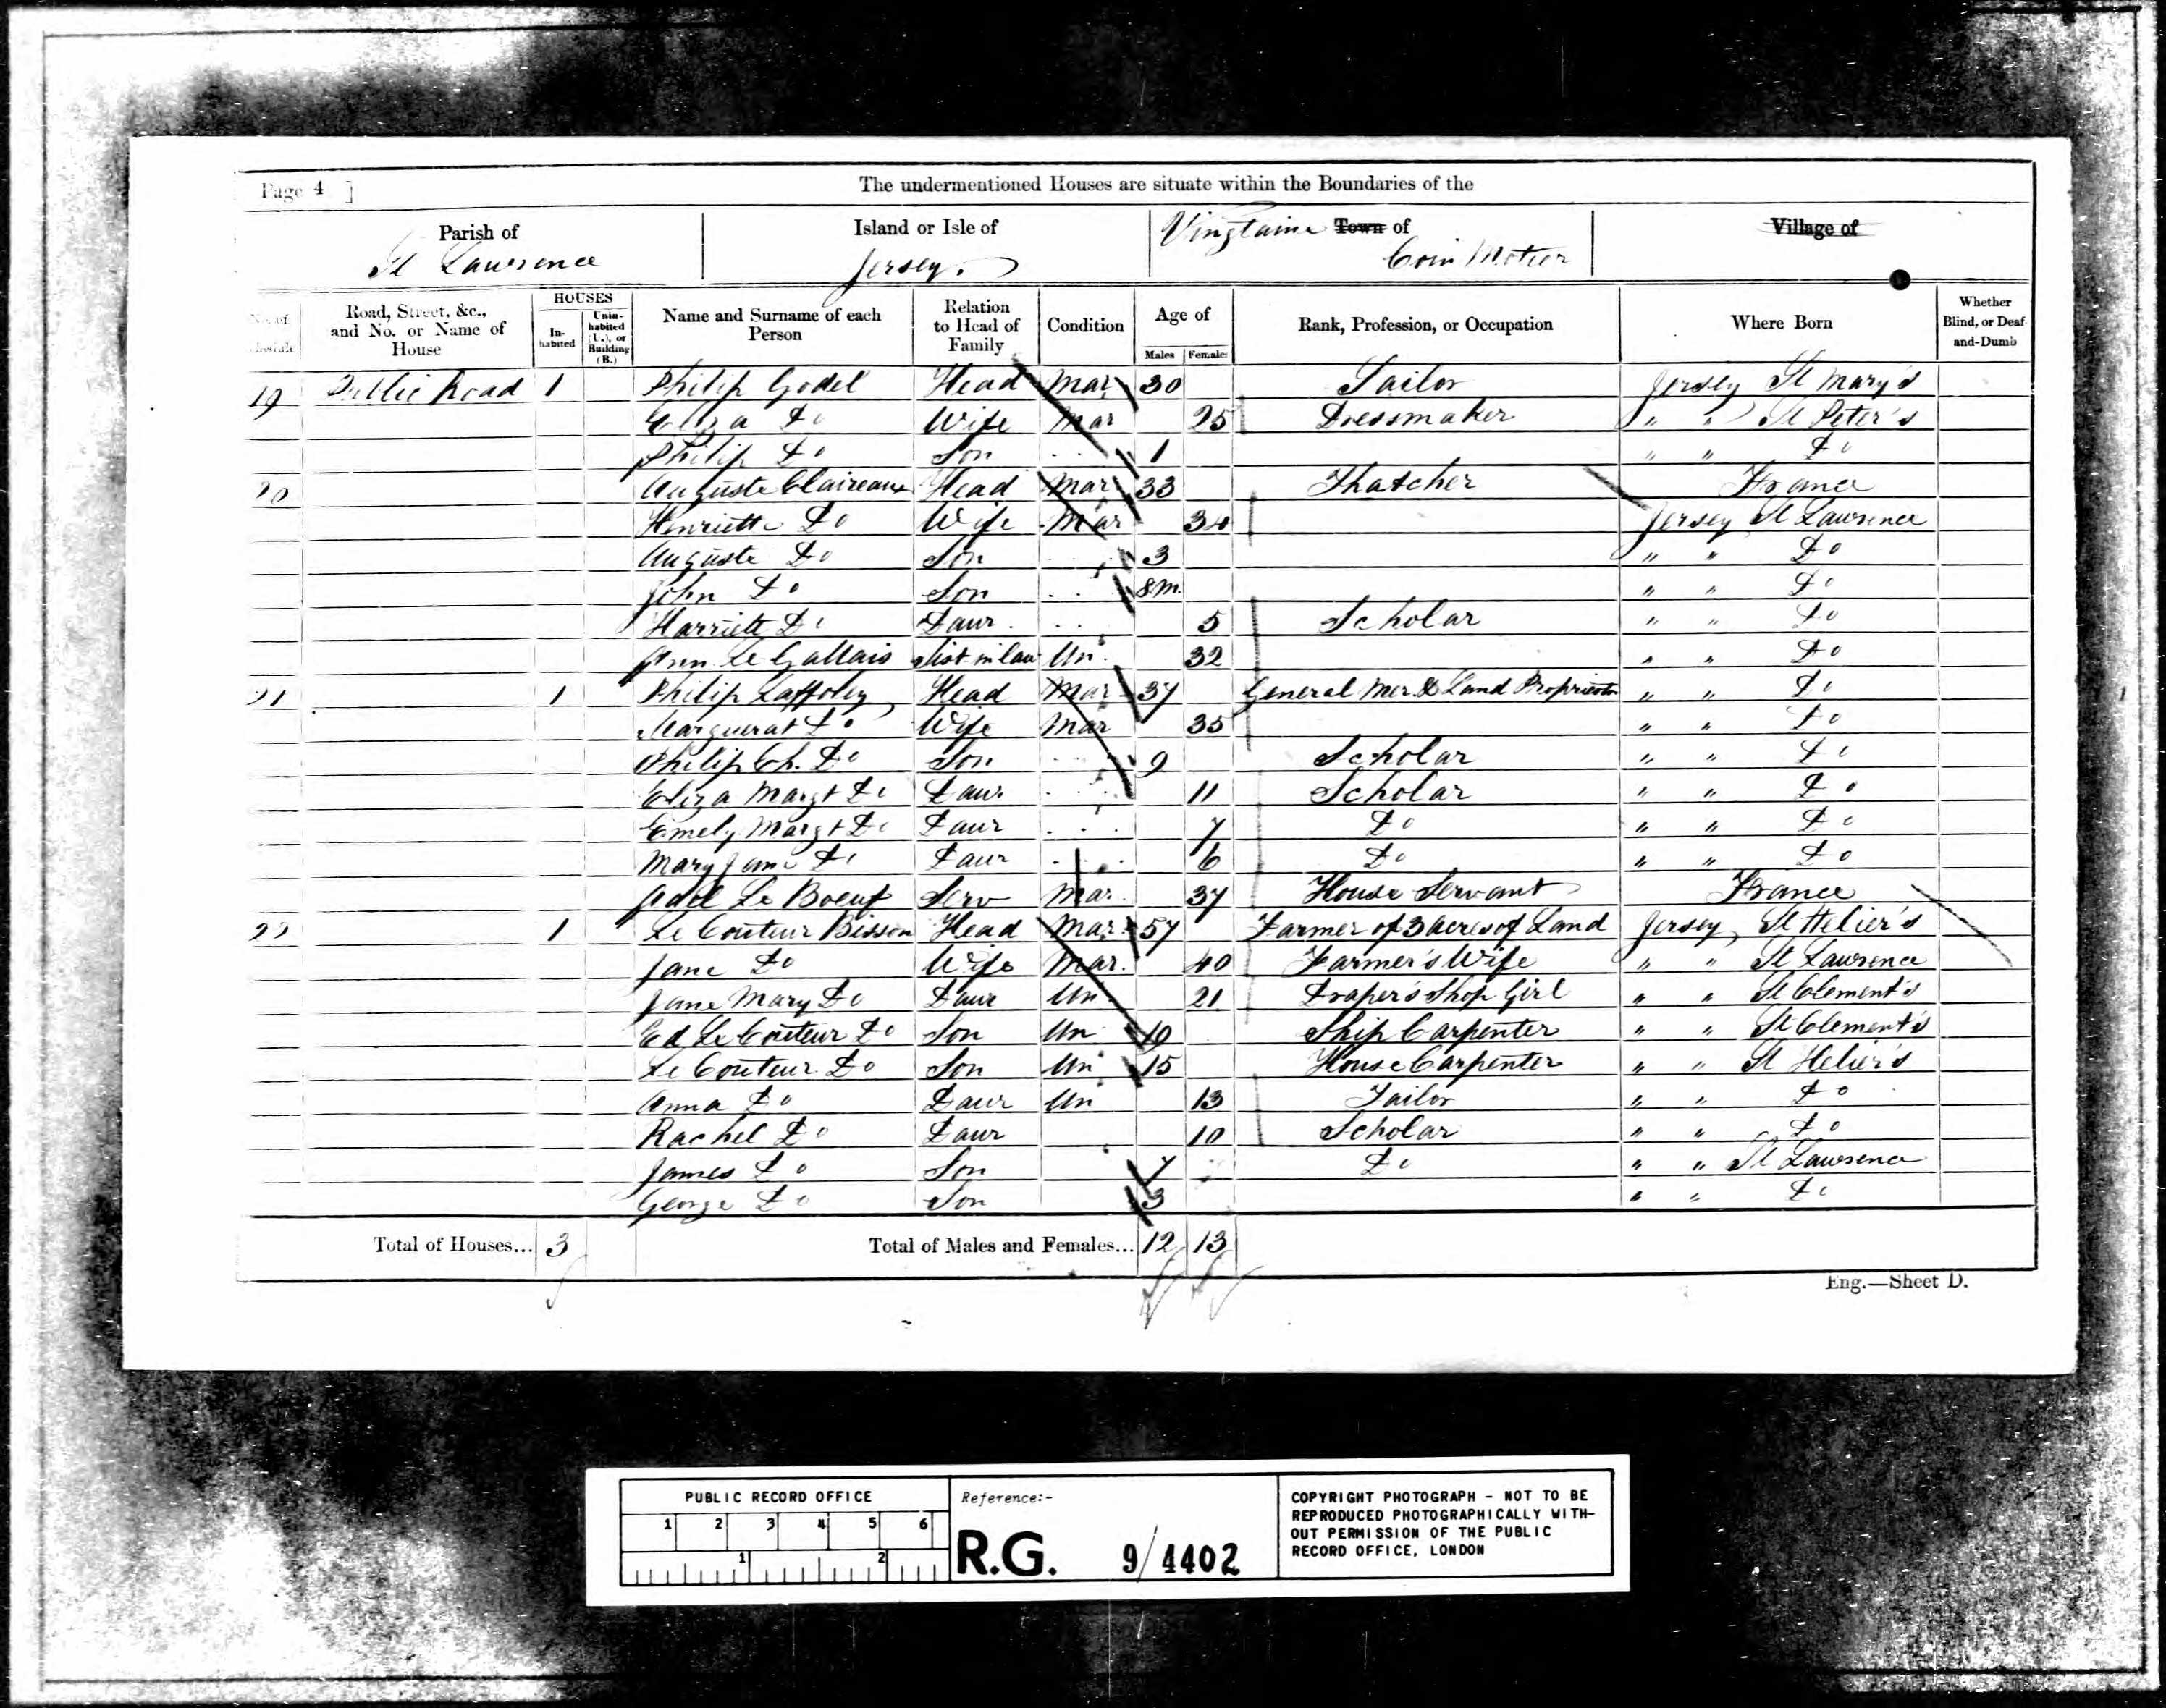 Page 4 ] The undermentioned Houses are situate within the Boundaries of the
Parish of Island or Isle of Vingtaine Town of Village of
St Lawrence Jersey. Coin Motier
No. of Schedule Road, Street, &c., and No. or Name of House HOUSES In-habited Unin-habited (U.), or Building (B.) Name and Surname of each Person Relation to Head of Family Condition Age of Males Females Rank, Profession, or Occupation Where Born Whether Blind, or Deaf-and-Dumb
19 Public Road 1 Philip Godel Head Mar 30 Tailor Jersey St Mary's
Eliza Do Wife Mar 25 Dressmaker " " St Peter's
Philip Do Son 1 " " Do
20 Auguste Claireaux Head Mar 33 Thatcher France
Henriette Do Wife Mar 34 Jersey St Lawrence
Auguste Do Son 3 " " Do
John Do Son 8m. " " Do
Harriett Do Daur. 5 Scholar " " Do
Ann Le Gallais Sist in law Un. 32 " " Do
21 1 Philip Laffoley Head Mar 37 General Mer. & Land Proprietor " " Do
Marguerat Do Wife Mar 35 " " Do
Philip Ch. Do Son 9 Scholar " " Do
Eliza Margt Do Daur. 11 Scholar " " Do
Emely Margt Do Daur 7 Do " " Do
Mary Jane Do Daur 6 Do " " Do
Adel Le Boeuf Serv Mar. 37 House Servant France
22 1 Le Couteur Bisson Head Mar. 57 Farmer of 3 acres of Land Jersey, St Helier's
Jane Do Wife Mar. 40 Farmer's Wife " " St Lawrence
Jane Mary Do Daur Un 21 Draper's Shop Girl " " St Clement's
Ed Le Couteur Do Son Un 19 Ship Carpenter " " St Clement's
Le Couteur Do Son Un 15 House Carpenter " " St Helier's
Anna Do Daur Un 13 Tailor " " Do
Rachel Do Daur 10 Scholar " " Do
James Do Son 7 Do " " St Lawrence
George Do Son 3 " " Do
Total of Houses... 3 Total of Males and Females... 12 13
Eng.—Sheet D.
PUBLIC RECORD OFFICE
1 2 3 4 5 6
1 2
Reference:-
R.G. 9/4402
COPYRIGHT PHOTOGRAPH - NOT TO BE
REPRODUCED PHOTOGRAPHICALLY WITH-
OUT PERMISSION OF THE PUBLIC
RECORD OFFICE, LONDON